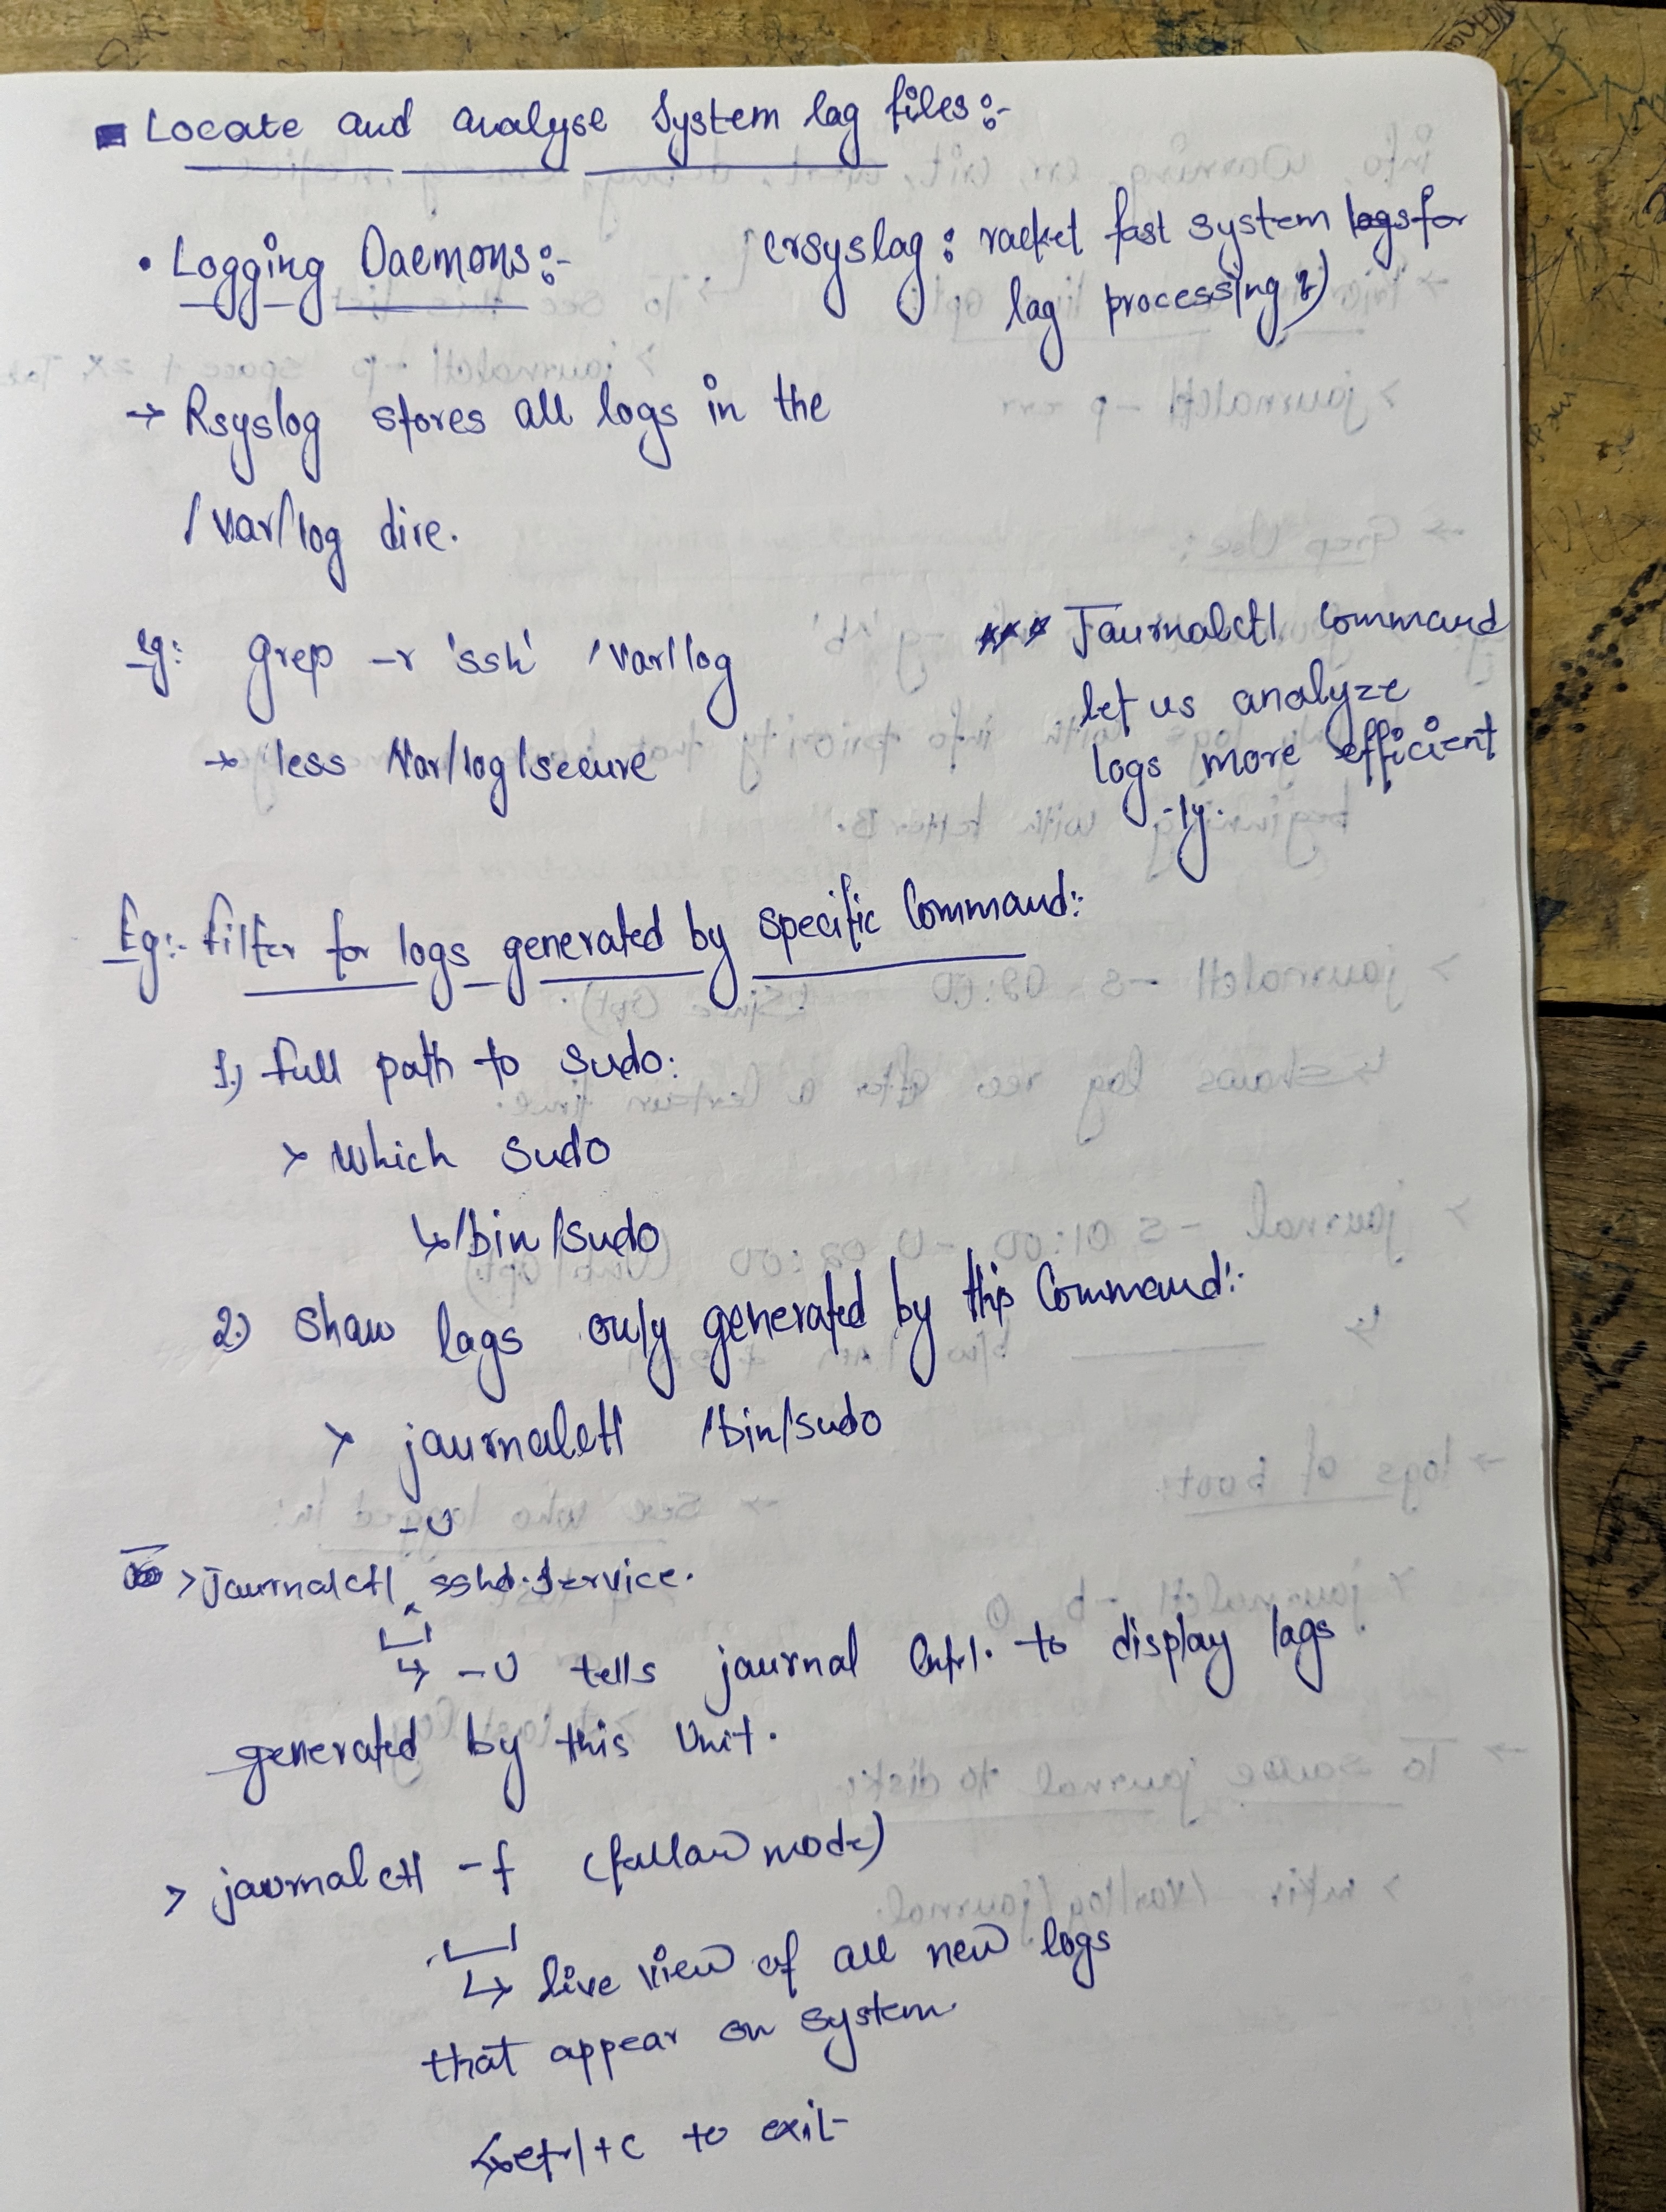 Locate and analyse System log files:-
• Logging Daemons:-
(rsyslog: rocket fast system logs for
log processing)
→ Rsyslog stores all logs in the
/var/log dire.
eg: grep -r 'ssh' /var/log
→ less /var/log/secure
*** Journalctl command
let us analyze
logs more efficient
-ly.
Eg:- Filter for logs generated by specific Command:-
1.) full path to sudo:
> which sudo
↳ /bin/sudo
2.) Show logs only generated by this Command:-
> journalctl /bin/sudo
-u
> journalctl ‸ sshd.service.
↳ -u tells journal Cntrl. to display logs
generated by this Unit.
> journalctl -f (follow mode)
↳ live view of all new logs
that appear on system
↳ ctrl+c to exit